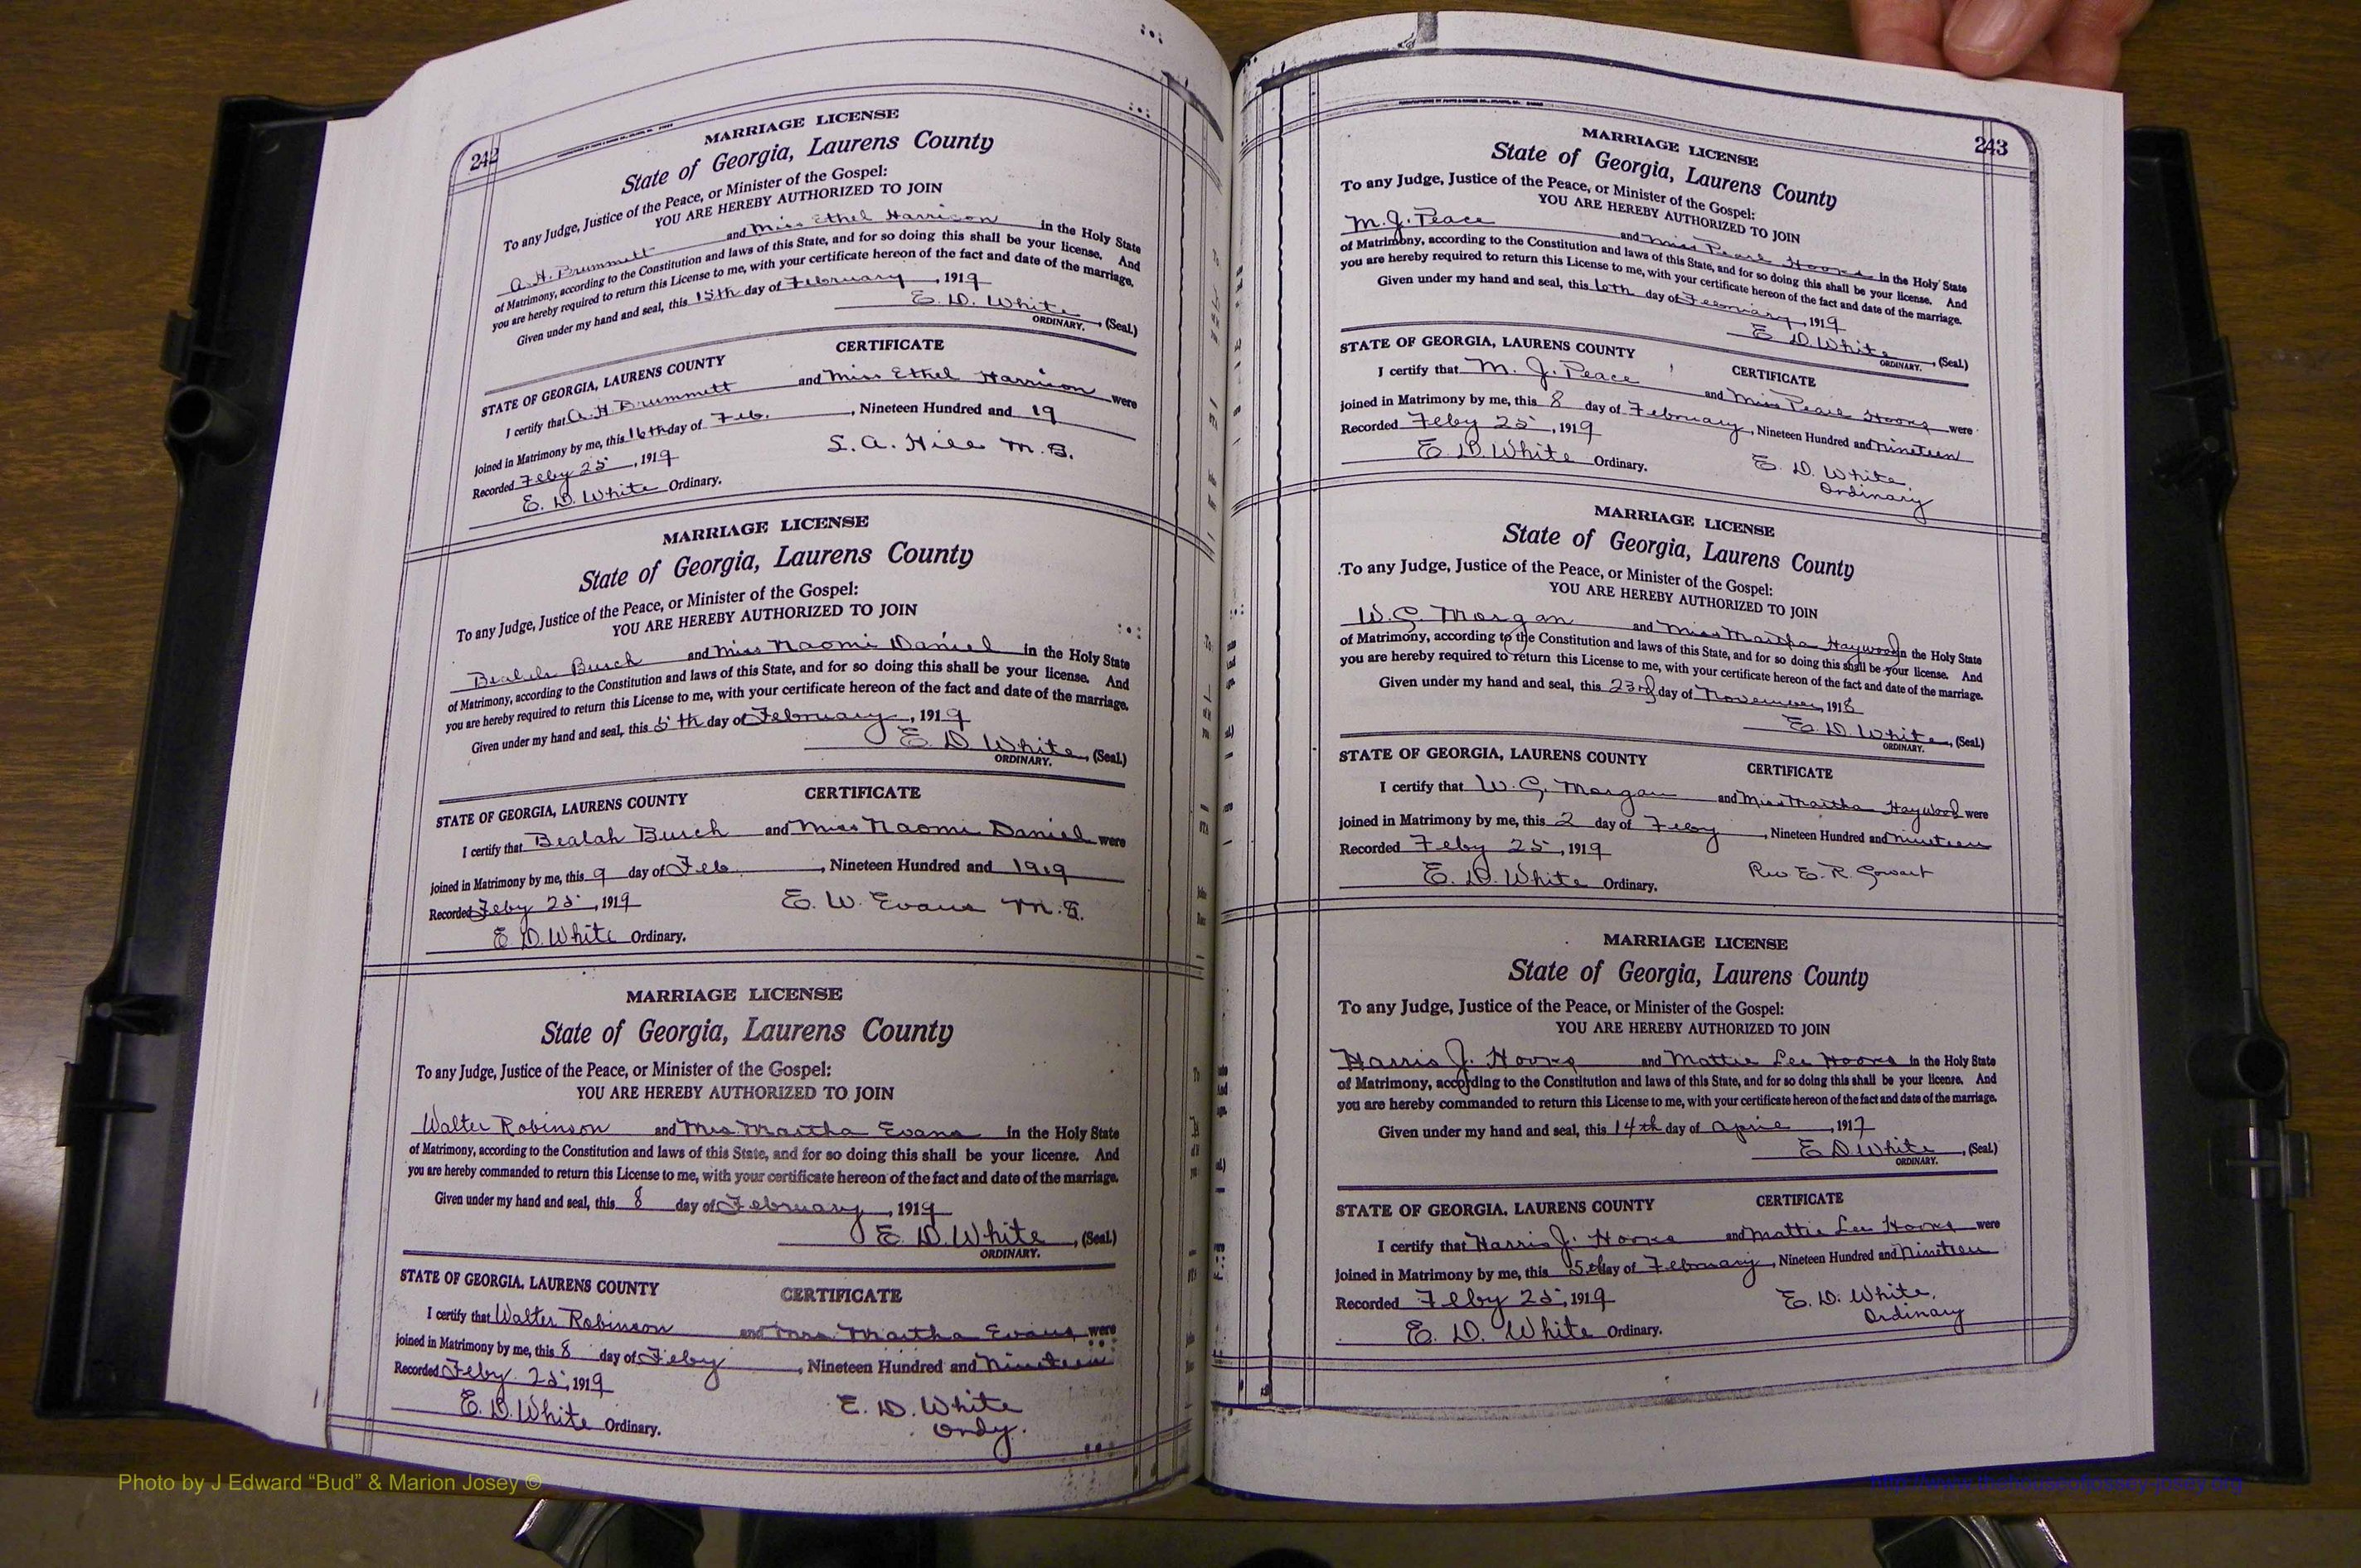 242
MARRIAGE LICENSE
State of Georgia, Laurens County
To any Judge, Justice of the Peace, or Minister of the Gospel:
YOU ARE HEREBY AUTHORIZED TO JOIN
A. H. Brummett and Miss Ethel Harrison in the Holy State
of Matrimony, according to the Constitution and laws of this State, and for so doing this shall be your license. And
you are hereby required to return this License to me, with your certificate hereon of the fact and date of the marriage.
Given under my hand and seal, this 15th day of February, 1919
E. D. White, (Seal.)
ORDINARY.
CERTIFICATE
STATE OF GEORGIA, LAURENS COUNTY
I certify that A. H. Brummett and Miss Ethel Harrison were
joined in Matrimony by me, this 16th day of Feb., Nineteen Hundred and 19
Recorded Feby 25, 1919
S. A. Hill M. G.
E. D. White Ordinary.
MARRIAGE LICENSE
State of Georgia, Laurens County
To any Judge, Justice of the Peace, or Minister of the Gospel:
YOU ARE HEREBY AUTHORIZED TO JOIN
Bealah Burch and Miss Naomi Daniel in the Holy State
of Matrimony, according to the Constitution and laws of this State, and for so doing this shall be your license. And
you are hereby required to return this License to me, with your certificate hereon of the fact and date of the marriage.
Given under my hand and seal, this 5th day of February, 1919
E. D. White, (Seal.)
ORDINARY.
CERTIFICATE
STATE OF GEORGIA, LAURENS COUNTY
I certify that Bealah Burch and Miss Naomi Daniel were
joined in Matrimony by me, this 9 day of Feb., Nineteen Hundred and 1919
Recorded Feby 25, 1919
E. W. Evans M. G.
E. D. White Ordinary.
MARRIAGE LICENSE
State of Georgia, Laurens County
To any Judge, Justice of the Peace, or Minister of the Gospel:
YOU ARE HEREBY AUTHORIZED TO JOIN
Walter Robinson and Mrs. Martha Evans in the Holy State
of Matrimony, according to the Constitution and laws of this State, and for so doing this shall be your license. And
you are hereby commanded to return this License to me, with your certificate hereon of the fact and date of the marriage.
Given under my hand and seal, this 8 day of February, 1919
E. D. White, (Seal.)
ORDINARY.
STATE OF GEORGIA, LAURENS COUNTY CERTIFICATE
I certify that Walter Robinson and Mrs. Martha Evans were
joined in Matrimony by me, this 8 day of Feby, Nineteen Hundred and Nineteen
Recorded Feby. 25, 1919
E. D. White
Ordy.
E. D. White Ordinary.
243
MARRIAGE LICENSE
State of Georgia, Laurens County
To any Judge, Justice of the Peace, or Minister of the Gospel:
YOU ARE HEREBY AUTHORIZED TO JOIN
M. J. Peace and Miss Pearl Hooks in the Holy State
of Matrimony, according to the Constitution and laws of this State, and for so doing this shall be your license. And
you are hereby required to return this License to me, with your certificate hereon of the fact and date of the marriage.
Given under my hand and seal, this day of February, 1919
E. D. White, (Seal.)
ORDINARY.
STATE OF GEORGIA, LAURENS COUNTY CERTIFICATE
I certify that M. J. Peace and Miss Pearl Hooks were
joined in Matrimony by me, this 8 day of February, Nineteen Hundred and Nineteen
Recorded Feby 25, 1919
E. D. White Ordinary.
E. D. White,
Ordinary
MARRIAGE LICENSE
State of Georgia, Laurens County
To any Judge, Justice of the Peace, or Minister of the Gospel:
YOU ARE HEREBY AUTHORIZED TO JOIN
W. G. Morgan and Miss Martha Haywood in the Holy State
of Matrimony, according to the Constitution and laws of this State, and for so doing this shall be your license. And
you are hereby required to return this License to me, with your certificate hereon of the fact and date of the marriage.
Given under my hand and seal, this 23rd day of November, 1918
E. D. White, (Seal.)
ORDINARY.
STATE OF GEORGIA, LAURENS COUNTY CERTIFICATE
I certify that W. G. Morgan and Miss Martha Haywood were
joined in Matrimony by me, this 2 day of Feby, Nineteen Hundred and nineteen
Recorded Feby 25, 1919
Rev E. R. Cowart
E. D. White Ordinary.
MARRIAGE LICENSE
State of Georgia, Laurens County
To any Judge, Justice of the Peace, or Minister of the Gospel:
YOU ARE HEREBY AUTHORIZED TO JOIN
Harris J. Hooks and Mattie Lee Hooks in the Holy State
of Matrimony, according to the Constitution and laws of this State, and for so doing this shall be your license. And
you are hereby commanded to return this License to me, with your certificate hereon of the fact and date of the marriage.
Given under my hand and seal, this 14th day of April, 1917
E D White, (Seal.)
ORDINARY.
STATE OF GEORGIA. LAURENS COUNTY CERTIFICATE
I certify that Harris J. Hooks and Mattie Lee Hooks were
joined in Matrimony by me, this 5th day of February, Nineteen Hundred and Nineteen
Recorded Feby 25, 1919
E. D. White,
Ordinary
E. D. White Ordinary.
Photo by J Edward “Bud” & Marion Josey ©
http://www.thehouseofjossey-josey.org